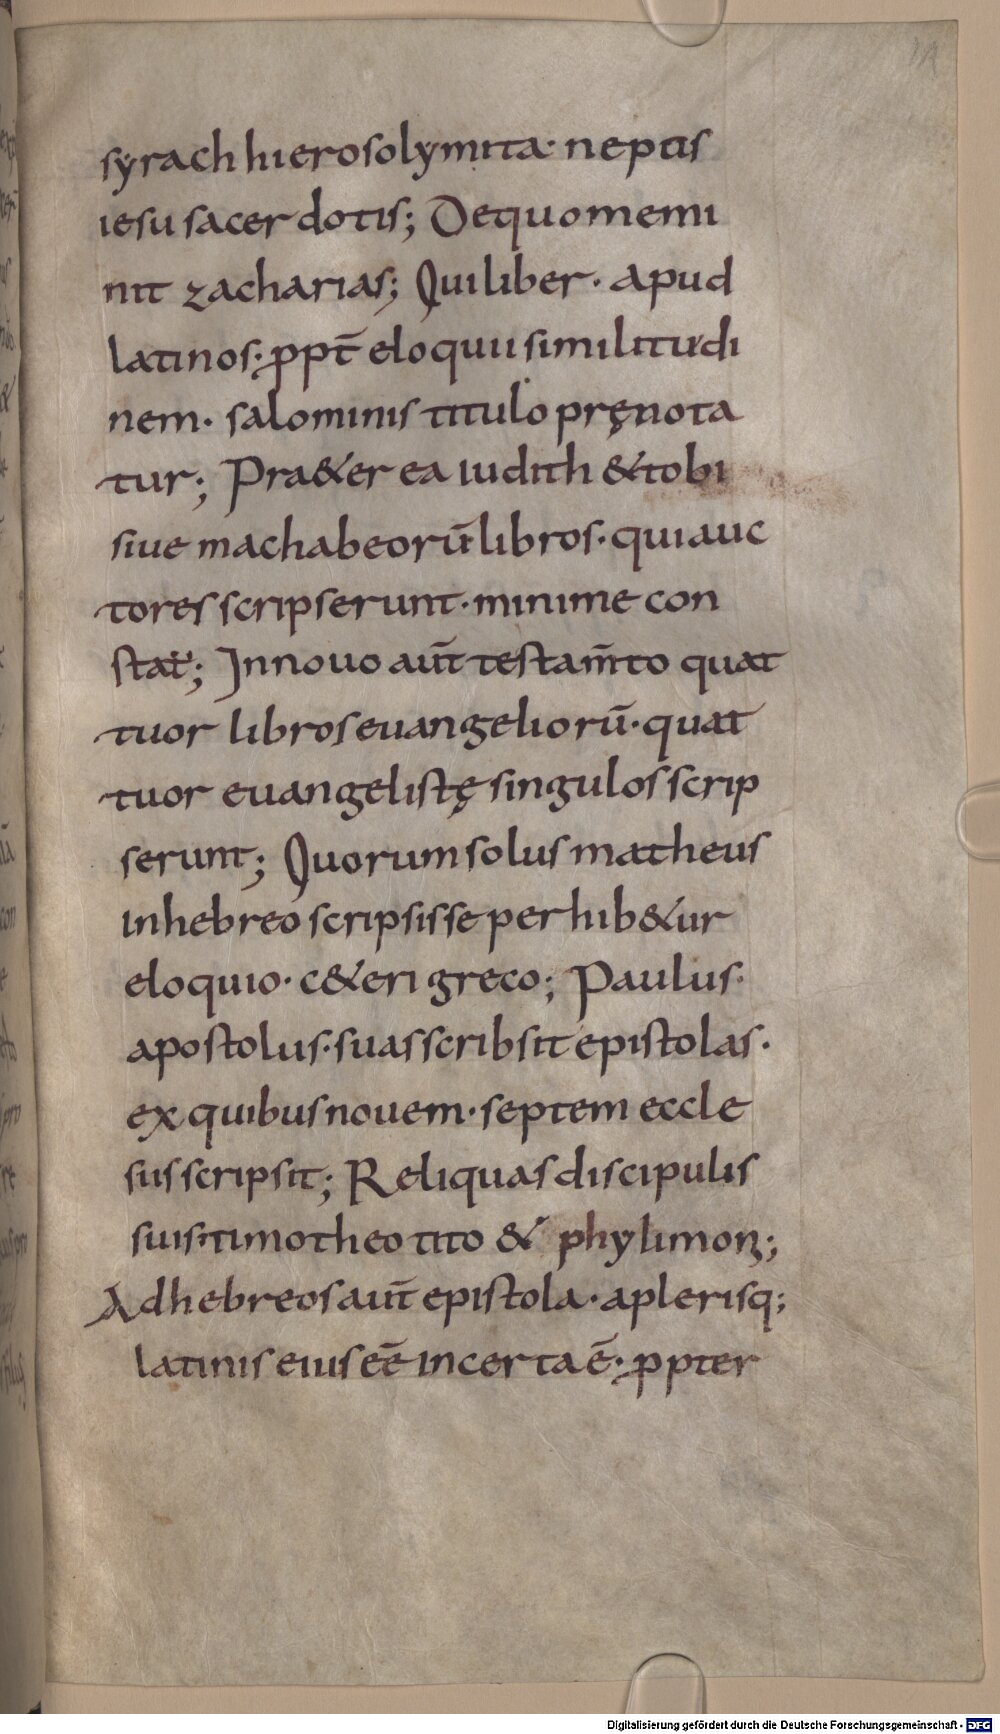 syrach hierosolymita· neptis
iesu sacerdotis; De quo memi
nit zacharias; Qui liber· apud
latinos· ꝓpt̄ eloquii similitudi
nem· salominis titulo pręnota
tur; Pra&er ea iudith & tobi
siue machabeorū libros· qui auc
tores scripserunt· minime con
stat; In nouo aut̄ testam̄to quat
tuor libros euangeliorū· quat
tuor euangelistę singulos scrip
serunt; Quorum solus matheus
in hebreo scripsisse perhib&ur
eloquio· c&eri greco; Paulus·
apostolus· suas scribsit epistolas·
ex quibus nouem· septem eccle
sus scripsit; Reliquas discipulis
suis· timotheo tito & phylimon;
Ad hebreos aut̄ epistola· a plerisq;
latinis eius eē incerta ē· ꝓpter
Digitalisierung gefördert durch die Deutsche Forschungsgemeinschaft - DFG